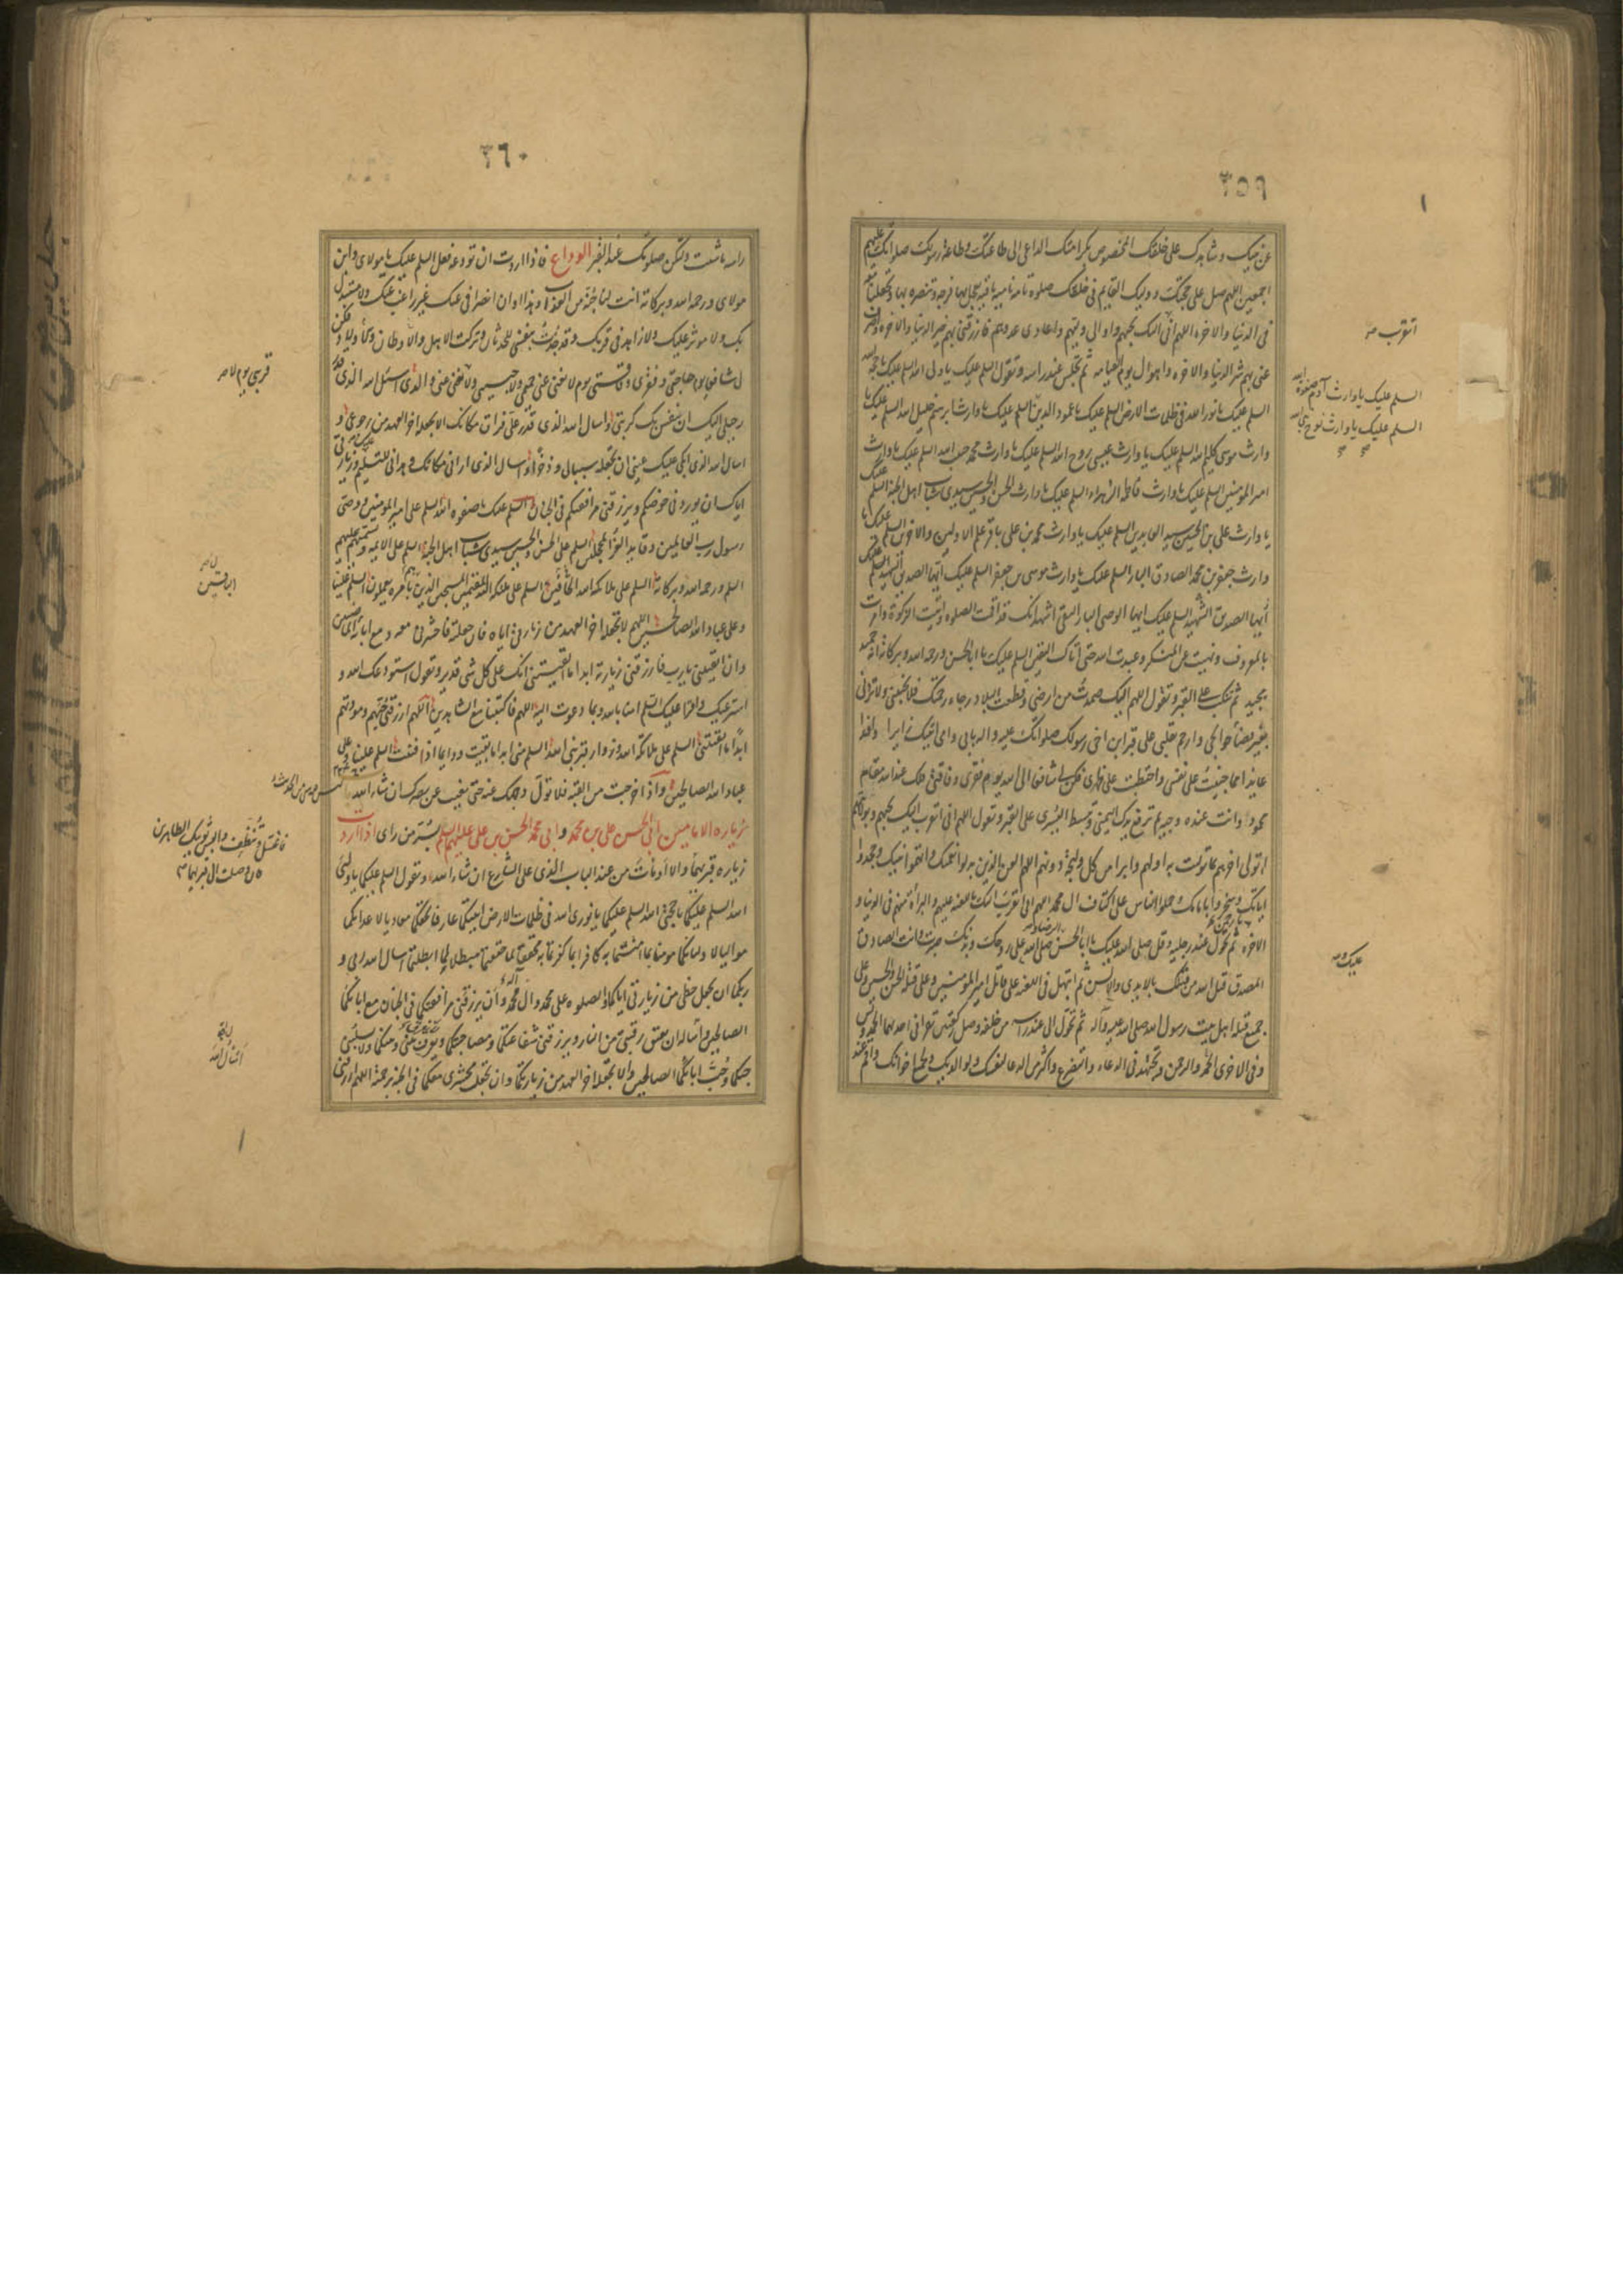 ٣٥٩
عن نبيك وشاهدك على خلقك المخصوص بكرامتك الداعى الى طاعتك وطاعة رسولك صلواتك عليهم
اجمعين اللهم صل على حجتك ووليك القايم فى خلقك صلوة تامة نامية باقية تعجل بها فرجه وتنصره بها وتجعلنا معه
فى الدنيا والاخرة اللهم انى اليك بحبهم واوالى وليهم واعادى عدوهم فارزقنى بهم خير الدنيا والاخرة واصرف
عنى بهم شر الدنيا والاخرة واهوال يوم القيامة ثم تجلس عند راسه وتقول السلم عليك يا ولى الله السلم عليك يا حجة الله
السلم عليك يا نور الله فى ظلمات الارض السلم عليك يا عمود الدين السلم عليك يا وارث ابرهيم خليل الله السلم عليك يا
وارث موسى كليم الله السلم عليك يا وارث عيسى روح الله السلم عليك يا وارث محمد حبيب الله السلم عليك يا وارث
امير المؤمنين السلم عليك يا وارث فاطمة الزهراء السلم عليك يا وارث الحسن والحسين سيدى شباب اهل الجنة السلم عليك
يا وارث على بن الحسين سيد العابدين السلم عليك يا وارث محمد بن على باقر علم الاولين والاخرين السلم عليك يا
وارث جعفر بن محمد الصادق البار السلم عليك يا وارث موسى بن جعفر السلم عليك ايها الصديق الشهيد السلم عليك
ايها الصديق الشهيد السلم عليك ايها الوصى البار التقى اشهد انك قد اقمت الصلوة واتيت الزكوة وامرت
بالمعروف ونهيت عن المنكر وعبدت الله حتى اتاك اليقين السلم عليك يا ابا الحسن ورحمة الله وبركاته انه حميد
مجيد ثم تنكب على القبر وتقول اللهم اليك صمدت من ارضى وقطعت البلاد رجاء رحمتك فلا تخيبنى ولا تردنى
بغير قضاء حوائجى وارحم تقلبى على قبر ابن اخى رسولك صلواتك عليه واله بابى وامى اتيتك زايرا وافدا
عايذا مما جنيت على نفسى واحتطبت على ظهرى فكن لى شافعا الى الله يوم فقرى وفاقتى فلك عند الله مقام
محمود وانت عنده وجيه ثم ترفع يدك اليمنى وتبسط اليسرى على القبر وتقول اللهم انى اتقرب اليك بحبهم وبولايتهم
اتولى اخرهم بما توليت به اولهم وابرا من كل وليجة دونهم اللهم العن الذين بدلوا نعمتك واتهموا نبيك وجحدوا
اياتك وسخروا بامامك وحملوا الناس على اكتاف ال محمد اللهم انى اتقرب اليك باللعنة عليهم والبراءة منهم فى الدنيا و
الاخرة ثم تحول عند رجليه وقل صلى الله عليك يا ابا الحسن صلى الله على روحك وبدنك صبرت وانت الصادق
المصدق قتل الله من قتلك بالايدى والالسن ثم ابتهل فى اللعنة على قاتل امير المؤمنين وعلى قتلة الحسن والحسين وعلى
جميع قتلة اهل بيت رسول الله صلى الله عليه وآله ثم تحول الى عند راسه من خلفه وصل ركعتين تقرا فى احديهما الحمد ويس
وفى الاخرى الحمد والرحمن وتجتهد فى الدعاء والتضرع واكثر من الدعا لنفسك ولوالديك ولجميع اخوانك واقم عند
اتقرب صه
السلم عليك يا وارث آدم صفوة الله
السلم عليك يا وارث نوح نبى الله
عليك صه
٣٦٠
راسه ما شئت ولتكن صلوتك عند القبر الوداع فاذا اردت ان تودعه فقل السلم عليك يا مولاى وابن
مولاى ورحمة الله وبركاته انت لنا جنة من العذاب وهذا اوان انصرافى عنك غير راغب عنك ولا مستبدل
بك ولا موثر عليك ولا زاهد فى قربك وقد جدت بنفسى للحدثان وتركت الاهل والاوطان والاولاد فكن
لى شافعا يوم حاجتى وفقرى وفاقتى يوم لا يغنى عنى حميمى ولا حبيبى ولا يغنى عنى والدى اسئل الله الذى قدر
رحيلى اليك ان ينفس بك كربتى واسال الله الذى قدر على فراق مكانك الا يجعله اخر العهد من رجوعى و
اسال الله الذى ابكى عليك عينى ان يجعله سببا لى وذخرا واسال الذى ارانى مكانك وهدانى للتسليم عليك وزيارتى
اياك ان يوردنى حوضكم ويرزقنى مرافقتكم فى الجنان السلم عليك يا صفوة الله السلم على امير المؤمنين ووصى
رسول رب العالمين وقايد الغر المحجلين السلم على الحسن والحسين سيدى شباب اهل الجنة السلم على الائمة وتسميهم عليهم
السلم ورحمة الله وبركاته السلم على ملائكة الله الحافين السلم على ملئكة الله المقيمين المسبحين الذين هم بامره يعملون السلم علينا
وعلى عباد الله الصالحين اللهم لا تجعله اخر العهد من زيارتى اياه فان جعلته فاحشرنى معه ومع ابائه الماضين
وان ابقيتنى يا رب فارزقنى زيارته ابدا ما ابقيتنى انك على كل شئ قدير وتقول استودعك الله و
استرعيك واقرا عليك السلم امنا بالله وبما دعوت اليه اللهم فاكتبنا مع الشاهدين اللهم ارزقنى حبهم ومودتهم
ابدا ما ابقيتنى السلم على ملائكة الله وزوار قبر ابن نبى الله السلم منى ابدا ما بقيت ودايما اذا فنيت السلم علينا وعلى
عباد الله الصالحين واذا خرجت من القبة فلا تول وجهك عنه حتى يغيب عن بصرك ان شاء الله
زيارة الامامين ابى الحسن على بن محمد وابى محمد الحسن بن على عليهم السلم بسر من راى اذا اردت
زيارة قبريهما والا اومات من عند الباب الذى على الشارع ان شاء الله وتقول السلم عليكما يا وليى
الله السلم عليكما يا حجتى الله السلم عليكما يا نورى الله فى ظلمات الارض اتيتكما عارفا بحقكما معاديا لاعدائكما
مواليا لاوليائكما مومنا بما امنتما به كافرا بما كفرتما به محققا لما حققتما مبطلا لما ابطلتما اسال الله ربى و
ربكما ان يجعل حظى من زيارتى اياكما الصلوة على محمد وال محمد وان يرزقنى مرافقتكما فى الجنان مع ابائكما
الصالحين واساله ان يعتق رقبتى من النار ويرزقنى شفاعتكما ومصاحبتكما ويعرف بينى وبينكما ولا يسلبنى
حبكما وحب ابائكما الصالحين والا يجعله اخر العهد من زيارتكما وان يجعل محشرى معكما فى الجنة برحمته اللهم ارزقنى
فاغتسل وتنظف والبس ثوبيك الطاهرين
فان وصلت الى قبريهما صه
اسال الله